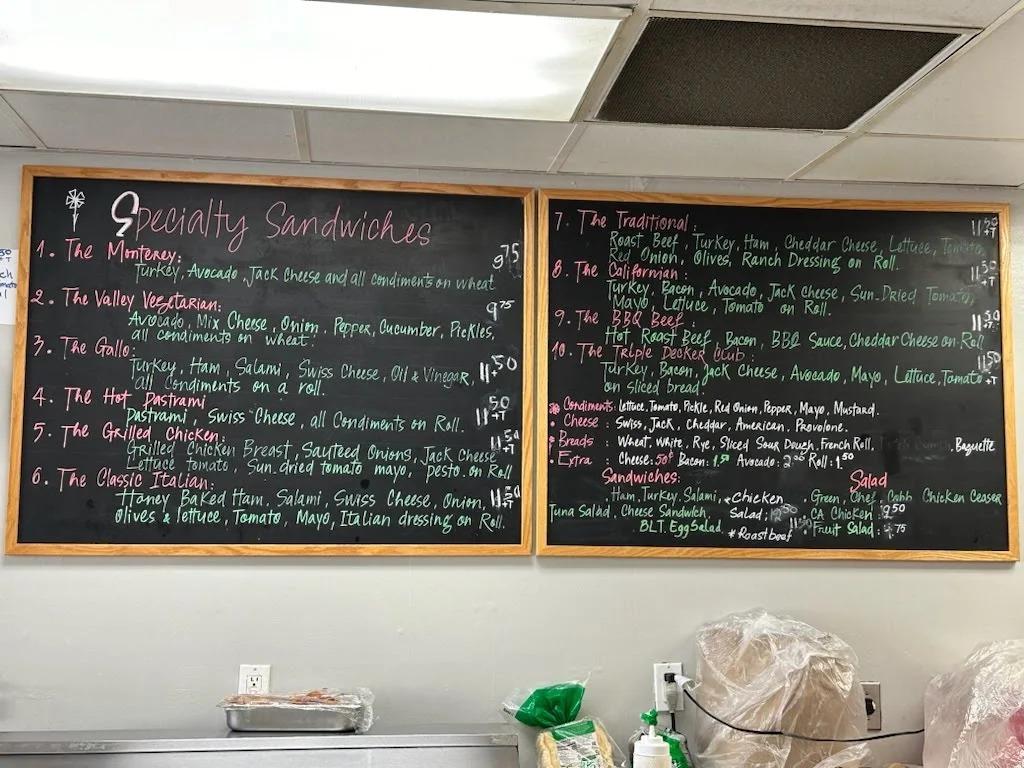 Specialty Sandwiches
1. The Monterey: 9.75
Turkey, Avocado, Jack cheese and all condiments on wheat
2. The Valley Vegetarian: 9.75
Avocado, Mix Cheese, Onion, Pepper, Cucumber, Pickles,
all condiments on wheat.
3. The Gallo:
Turkey, Ham, Salami, Swiss Cheese, Oil & Vinegar, 11.50
all Condiments on a roll.
4. The Hot Pastrami
Pastrami, Swiss Cheese, all Condiments on Roll. 11.50 +T
5. The Grilled Chicken: 11.50 +T
Grilled Chicken Breast, Sauteed Onions, Jack Cheese
Lettuce tomato, Sun.dried tomato mayo, pesto. on Roll
6. The Classic Italian:
Honey Baked Ham, Salami, Swiss Cheese, Onion, 11.50 +T
Olives & lettuce, Tomato, Mayo, Italian dressing on Roll.
7. The Traditional: 11.50 +T
Roast Beef, Turkey, Ham, Cheddar Cheese, Lettuce, Tomato,
Red Onion, Olives, Ranch Dressing on Roll.
8. The Californian: 11.50 +T
Turkey, Bacon, Avocado, Jack cheese, Sun-Dried Tomato,
Mayo, Lettuce, Tomato on Roll.
9. The BBQ Beef: 11.50 +T
Hot Roast Beef, Bacon, BBQ Sauce, Cheddar Cheese on Roll
10. The Triple Decker Club: 11.50 +T
Turkey, Bacon, Jack Cheese, Avocado, Mayo, Lettuce, Tomato
on Sliced bread
Condiments: Lettuce, Tomato, Pickle, Red Onion, Pepper, Mayo, Mustard.
Cheese: Swiss, Jack, Cheddar, American, Provolone.
Breads: Wheat, White, Rye, Sliced Sour Dough, French Roll, Baguette
Extra: Cheese: 50¢ Bacon: 1.50 Avocado: 2.00 Roll: 1.50
Sandwiches:
Ham, Turkey, Salami,
Tuna Salad, Cheese Sandwich,
BLT. Egg Salad
*Chicken
Salad;
*Roastbeef
Salad
Green, Chef, Cobb Chicken Ceaser
CA Chicken: 9.50
Fruit Salad: